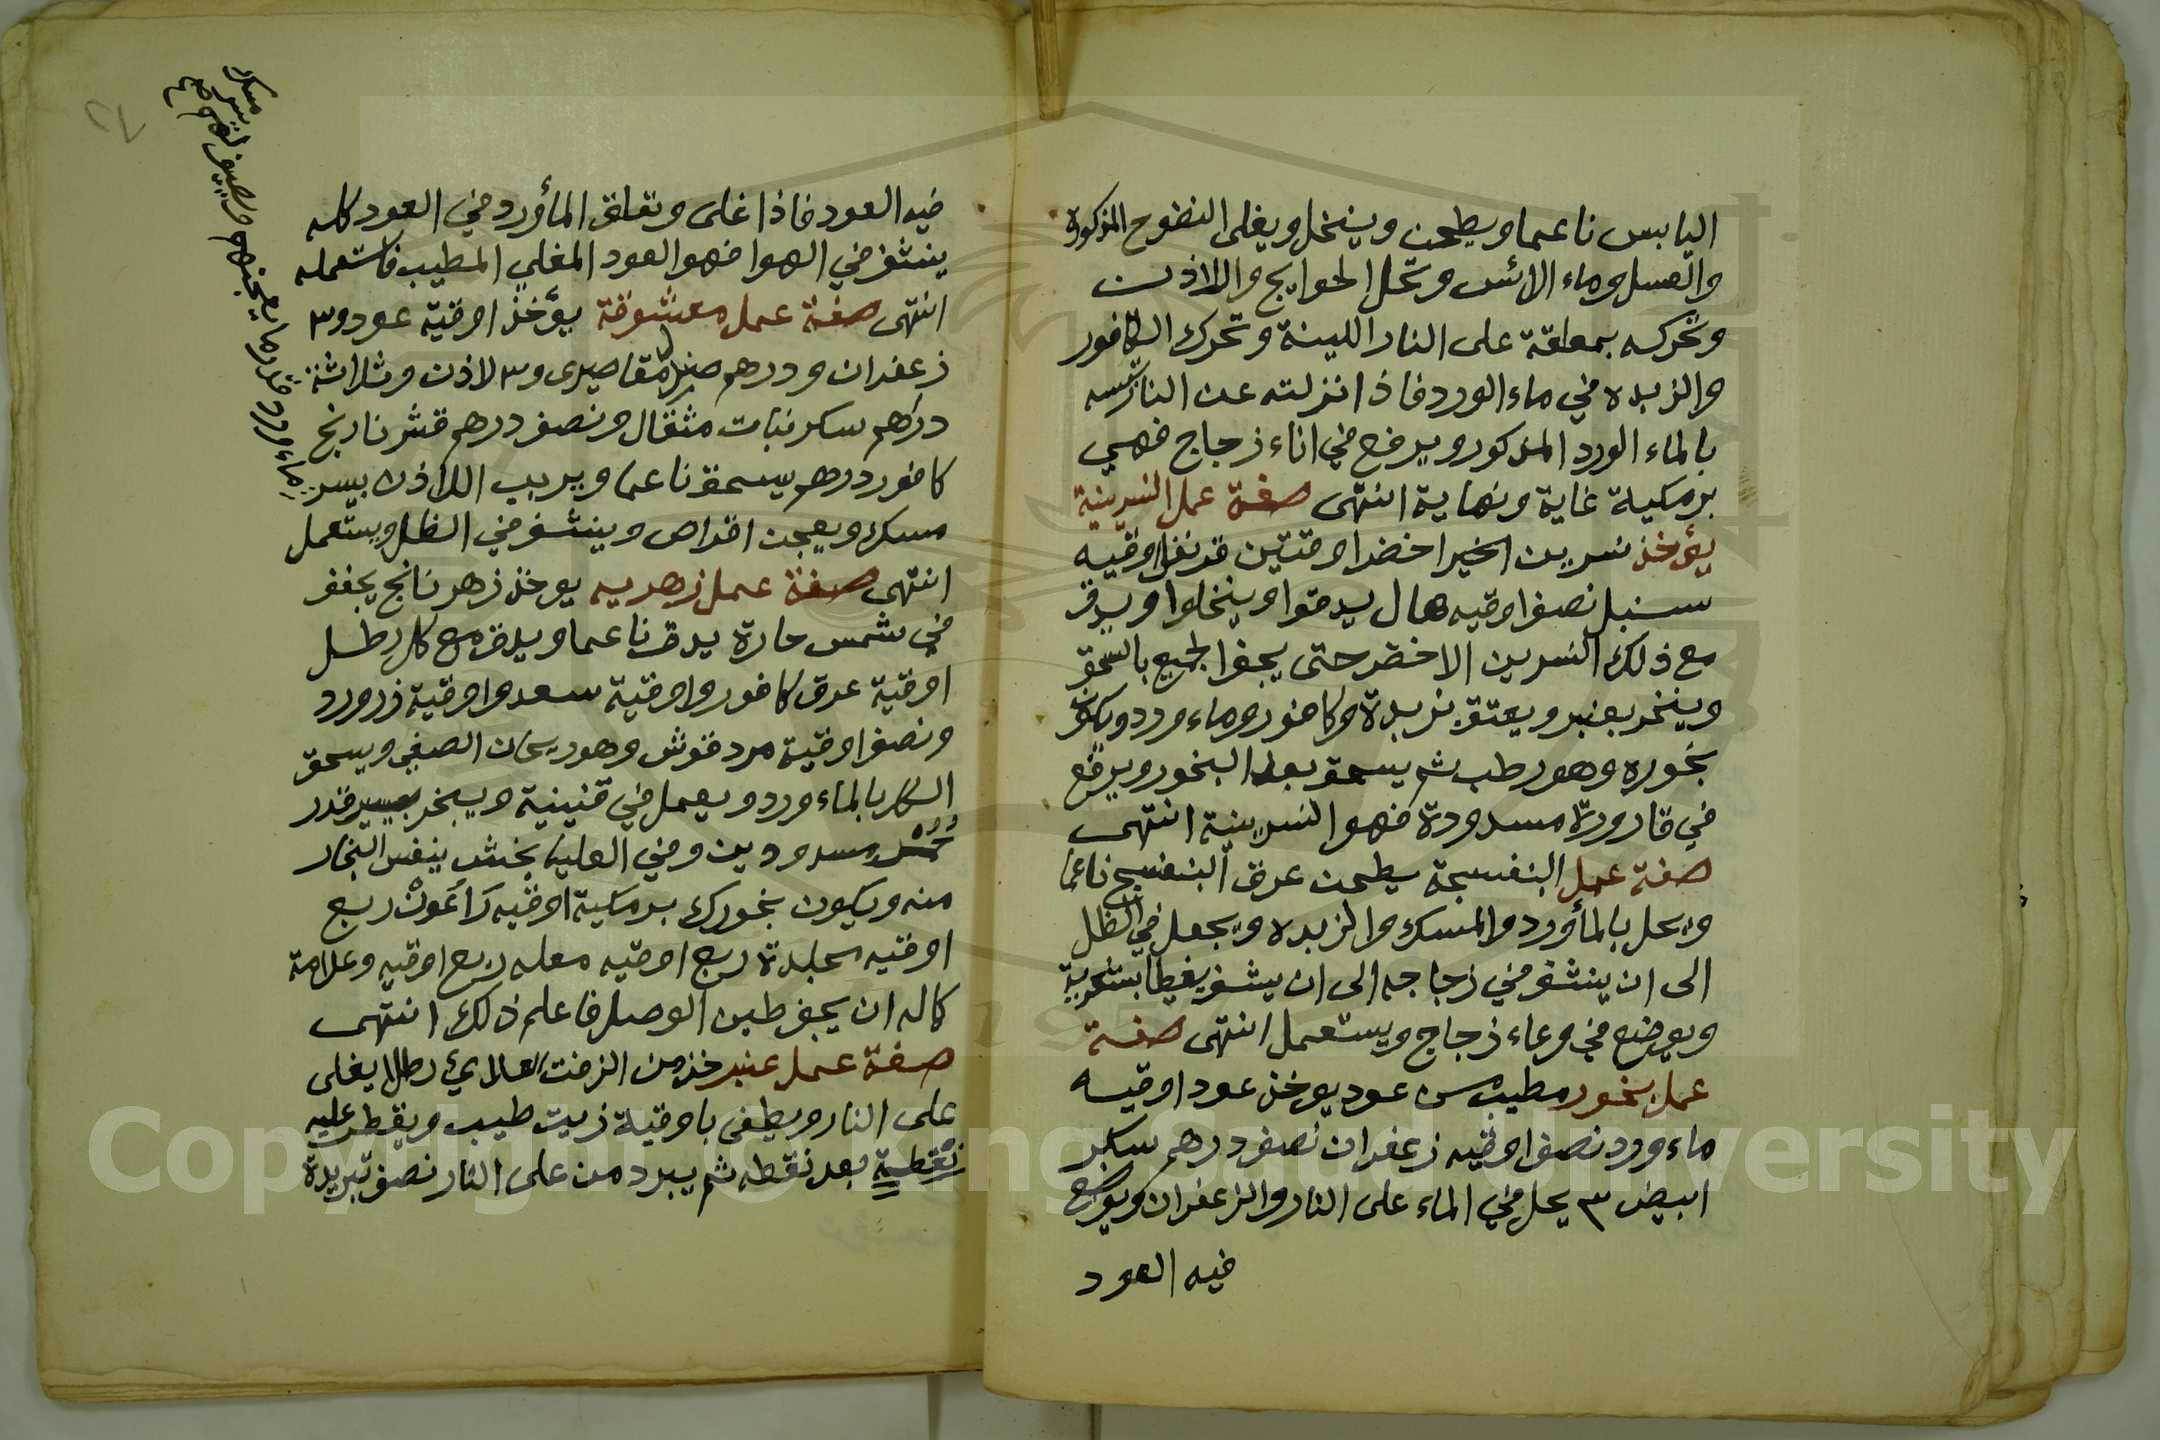 اليابس ناعما ويطحن وينخل ويغلى النضوح المذكورة
والعسل وماء الائس وتحل الحوايج واللاذن
وتحركه بمعلقة على النار اللينة وتحرك الكافور
والزبده في ماء الورد فاذا نزلته عن النار تسه
بالماء الورد المذكور ويرفع في اناء زجاج فهي
برمكية غاية ونهاية انتهى صفة عمل النسرينية
يؤخذ نسرين اخضر اوقتين قرنفل اوقيه
سنبل نصف اوقيه هال يدقوا وينخلوا ويدق
مع ذلك النسرين الاخضر حتى يجف الجميع بالسحق
وينخر بعنبر ويعتق بزبدة وكافور وماء ورد ويكون
بخوره وهو رطب ثم يسحق بعد البخور ويرفع
في قارورة مسدودة فهو النسرينية انتهى
صفة عمل البنفسجة يطحن عرق البنفسج ناعما
ويحل بالمأورد والمسك والزبده ويجعل في الظل
الى ان ينشف في زجاجه الى ان ينشف يغيطا بستخربية
ويوضع في وعاء زجاج ويستعمل انتهى صفة
عمل بخور مطيب من عود يوخذ عود اوقيه
ماء ورد نصف اوقيه زعفران نصف درهم سكر
ابيض ٣ يحل في الماء على النار والزعفران ويوضع
فيه العود
فيه العود فاذا غلى وتعلق المأورد في العود كله
ينشف في الهوا فهو العود المغلي المطيب فاستعمله
انتهى صفة عمل معشوقة يؤخذ اوقية عود و٣
زعفران ودرهم صندل مقاصيرى و٣ لاذن وثلاثة
درهم سكر نبات مثقال ونصف درهم قشر نارنج
كافور درهم يسحق ناعما ويربب اللاذن بيسير
مسك ويعجن اقراص وينشف في الظل ويستعمل
انتهى صفة عمل زهريه يوخذ زهر نانج يجفف
في شمس حارة يدق ناعما ويدق مع كل رطل
اوقية عرق كافور واوقية سعد واوقية زرورد
ونصف اوقية مردقوش وهو ريحان الصيفي ويسحق
الكل بالماء ورد ويعمل في قنينية ويبخر بيسير قدر
مسدودين وفي العليا بخش ينفس البخار
منه ويكون بخورك برمكية اوقيه راعون ربع
اوقيه سجلبدة ربع اوقيه معله ربع اوقيه وعلامة
كماله ان يجف طين الوصل فاعلم ذلك انتهى
صفة عمل عنبر خذ من الزفت العلادي رطل يغلى
على النار ويطفى باوقية زيت طيب ويقطر عليه
نقطية بعد نقطه ثم يبرد من على النار نصف تبريدة
ماء ورد وقدر ما يعجنهم ويضيف لهم
مسك
Copyright © King Saud University
1957